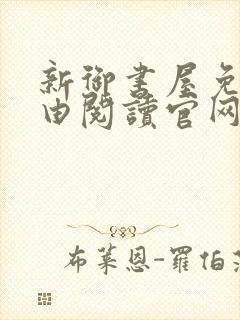 新御書屋免
由閱讀官网
布莱恩-羅伯